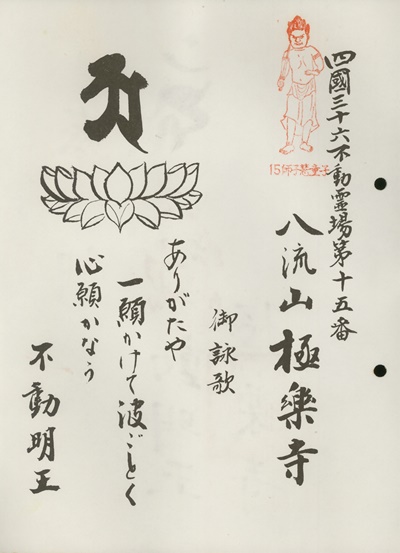 四國三十六不動霊場第十五番
15師子慧童子
八流山極樂寺
御詠歌
ありがたや
一願かけて波ごとく
心願かなう
不動明王